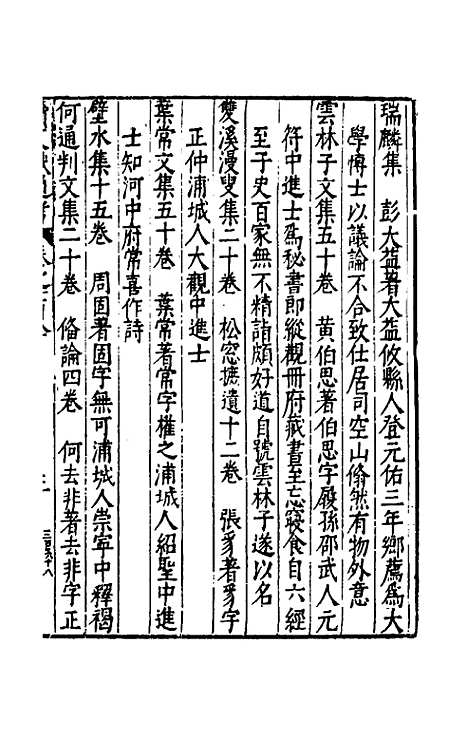 瑞麟集　彭大益著大益攸縣人登元佑三年鄉薦爲大
學博士以議論不合致仕居司空山翛然有物外意
雲林子文集五十卷　黃伯思著伯思字長孫邵武人元
符中進士爲秘書郎縱觀冊府藏書至忘寢食自六經
至子史百家無不精詣頗好道自號雲林子遂以名
雙溪漫叟集二十卷　松窓摭遺十二卷　張豸著豸字
正仲浦城人大觀中進士
葉常文集五十卷　葉常著常字權之浦城人紹聖中進
士知河中府常喜作詩
璧水集十五卷　周固著固字無可浦城人崇寧中釋褐
何通判文集二十卷　俻論四卷　何去非著去非字正